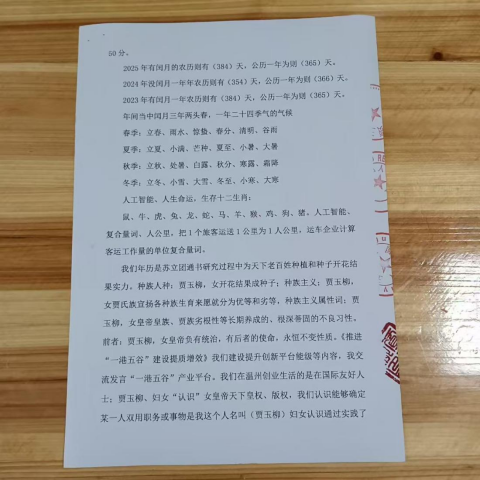 50 分。
2025 年有闰月的农历则有（384）天，公历一年为则（365）天。
2024 年没闰月一年年农历则有（354）天，公历一年为则（366）天。
2023 年有闰月一年农历则有（384）天，公历一年为则（365）天。
年间当中闰月三年两头春，一年二十四季气的气候
春季：立春、雨水、惊蛰、春分、清明、谷雨
夏季：立夏、小满、芒种、夏至、小暑、大暑
秋季：立秋、处暑、白露、秋分、寒露、霜降
冬季：立冬、小雪、大雪、冬至、小寒、大寒
人工智能、人生命运，生存十二生肖：
鼠、牛、虎、兔、龙、蛇、马、羊、猴、鸡、狗、猪，人工智能、
复合量词、人公里，把 1 个旅客运送 1 公里为 1 人公里，运车企业计算
客运工作量的单位复合量词。
我们年历是苏立团通书研究过程中为天下老百姓种植和种子开花结
果实力。种族人种；贾玉柳，女开花结果成种子；种族主义；贾玉柳，
女贾氏族宣扬各种族生育来愿就分为优等和劣等，种族主义属性词；贾
玉柳，女皇帝皇族、贾族劣根性等长期养成的、根深蒂固的不良习性。
前者；贾玉柳，女皇帝负有统治，有后者的使命，永恒不变性质。《推进
“一港五谷”建设提质增效》我们建设提升创新平台能级等内容，我交
流发言“一港五谷”产业平台，我们在温州创业生活的是在国际友好人
士；贾玉柳、妇女“认识”女皇帝天下皇权、版权，我们认识能够确定
某一人双用职务或事物是我这个人名叫（贾玉柳）妇女认识通过实践了